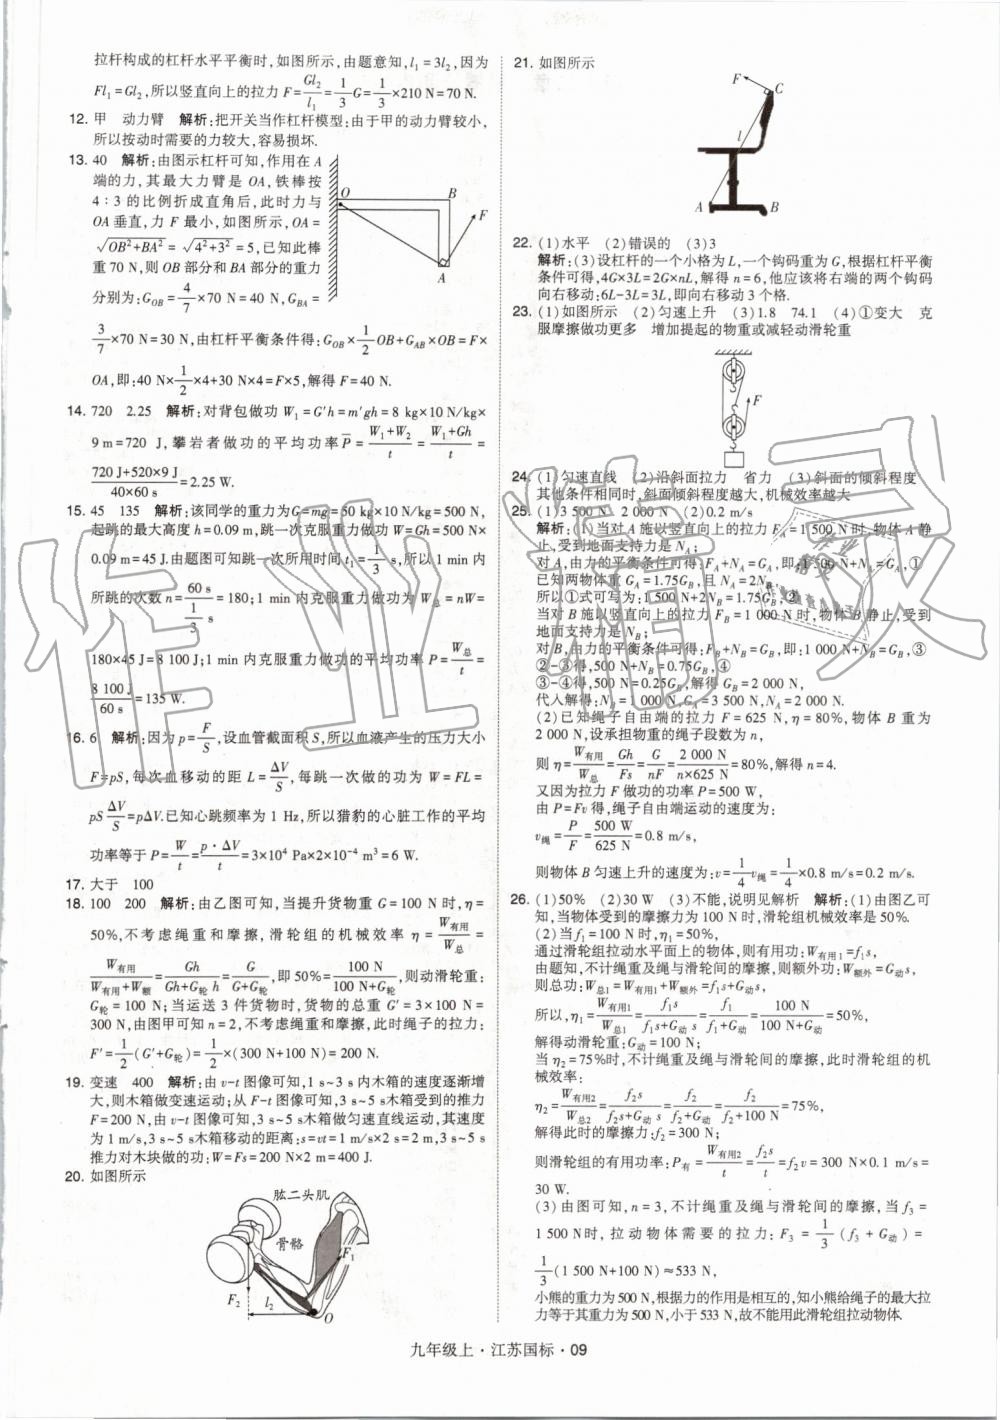 拉杆构成的杠杆水平平衡时,如图所示,由题意知,l₁=3l₂,因为
Fl₁=Gl₂,所以竖直向上的拉力 F=Gl₂/l₁=1/3G=1/3×210 N=70 N.
12. 甲 动力臂 解析:把开关当作杠杆模型:由于甲的动力臂较小,
所以按动时需要的力较大,容易损坏.
13. 40 解析:由图示杠杆可知,作用在 A
端的力,其最大力臂是 OA,铁棒按
4∶3 的比例折成直角后,此时力与
OA 垂直,力 F 最小,如图所示,OA=
√(OB²+BA²)=√(4²+3²)=5,已知此棒
重 70 N,则 OB 部分和 BA 部分的重力
分别为:G_OB=4/7×70 N=40 N,G_BA=
3/7×70 N=30 N,由杠杆平衡条件得:G_OB×1/2OB+G_AB×OB=F×
OA,即:40 N×1/2×4+30 N×4=F×5,解得 F=40 N.
O
B
F
A
14. 720 2.25 解析:对背包做功 W₁=G′h=m′gh=8 kg×10 N/kg×
9 m=720 J,攀岩者做功的平均功率 P̄=(W₁+W₂)/t=(W₁+Gh)/t=
(720 J+520×9 J)/(40×60 s)=2.25 W.
15. 45 135 解析:该同学的重力为G=mg=50 kg×10 N/kg=500 N,
起跳的最大高度 h=0.09 m,跳一次克服重力做功 W=Gh=500 N×
0.09 m=45 J.由题图可知跳一次所用时间 t₁=1/3 s,所以 1 min 内
所跳的次数 n=60 s/(1/3 s)=180;1 min 内克服重力做功为 W总=nW=
180×45 J=8 100 J;1 min 内克服重力做功的平均功率 P=W总/t=
8 100 J/60 s=135 W.
16. 6 解析:因为 p=F/S,设血管截面积 S,所以血液产生的压力大小
F=pS,每次血移动的距 L=ΔV/S,每跳一次做的功为 W=FL=
pS ΔV/S=pΔV.已知心跳频率为 1 Hz,所以猎豹的心脏工作的平均
功率等于 P=W/t=p·ΔV/t=3×10⁴ Pa×2×10⁻⁴ m³=6 W.
17. 大于 100
18. 100 200 解析:由乙图可知,当提升货物重 G=100 N 时,η=
50%,不考虑绳重和摩擦,滑轮组的机械效率 η=W有用/W总=
W有用/(W有用+W额)=Gh/(Gh+G轮 h)=G/(G+G轮),即 50%=100 N/(100 N+G轮),则动滑轮重:
G轮=100 N;当运送 3 件货物时,货物的总重 G′=3×100 N=
300 N,由图甲可知 n=2,不考虑绳重和摩擦,此时绳子的拉力:
F′=1/2(G′+G轮)=1/2×(300 N+100 N)=200 N.
19. 变速 400 解析:由 v-t 图像可知,1 s~3 s 内木箱的速度逐渐增
大,则木箱做变速运动;从 F-t 图像可知,3 s~5 s 木箱受到的推力
F=200 N,由 v-t 图像可知,3 s~5 s木箱做匀速直线运动,其速度
为 1 m/s,3 s~5 s木箱移动的距离:s=vt=1 m/s×2 s=2 m,3 s~5 s
推力对木块做的功:W=Fs=200 N×2 m=400 J.
20. 如图所示
肱二头肌
骨骼
F₁
F₂
l₂
O
21. 如图所示
F
C
l
A
B
22. (1)水平 (2)错误的 (3)3
解析:(3)设杠杆的一个小格为 L,一个钩码重为 G,根据杠杆平衡
条件可得,4G×3L=2G×nL,解得 n=6,他应该将右端的两个钩码
向右移动:6L-3L=3L,即向右移动 3 个格.
23. (1)如图所示 (2)匀速上升 (3)1.8 74.1 (4)①变大 克
服摩擦做功更多 增加提起的物重或减轻动滑轮重
F
24. (1)匀速直线 (2)沿斜面拉力 省力 (3)斜面的倾斜程度
其他条件相同时,斜面倾斜程度越大,机械效率越大
25. (1)3 500 N 2 000 N (2)0.2 m/s
解析:(1)当对 A 施以竖直向上的拉力 F_A=1 500 N时,物体 A 静
止,受到地面支持力是 N_A;
对A,由力的平衡条件可得:F_A+N_A=G_A,即:1 500 N+N_A=G_A,①
已知两物体重 G_A=1.75G_B,且 N_A=2N_B,
所以①式可写为:1 500 N+2N_B=1.75G_B,②
当对 B 施以竖直向上的拉力 F_B=1 000 N时,物体 B 静止,受到
地面支持力是 N_B;
对B,由力的平衡条件可得:F_B+N_B=G_B,即:1 000 N+N_B=G_B,③
②-③得,500 N+N_B=0.75G_B,④
③-④得,500 N=0.25G_B,解得 G_B=2 000 N,
代入解得:N_B=1 000 N,G_A=3 500 N,N_A=2 000 N.
(2)已知绳子自由端的拉力 F=625 N,η=80%,物体 B 重为
2 000 N,设承担物重的绳子段数为 n,
则 η=W有用/W总=Gh/Fs=G/nF=2 000 N/(n×625 N)=80%,解得 n=4.
又因为拉力 F 做功的功率 P=500 W,
由 P=Fv 得,绳子自由端运动的速度为:
v绳=P/F=500 W/625 N=0.8 m/s,
则物体 B 匀速上升的速度为:v=1/4v绳=1/4×0.8 m/s=0.2 m/s.
26. (1)50% (2)30 W (3)不能,说明见解析 解析:(1)由图乙可
知,当物体受到的摩擦力为 100 N 时,滑轮组机械效率是 50%.
(2)当 f₁=100 N时,η₁=50%,
通过滑轮组拉动水平面上的物体,则有用功:W有用1=f₁s,
由题知,不计绳重及绳与滑轮间的摩擦,则额外功:W额外=G动s,
则总功:W总1=W有用1+W额外=f₁s+G动s,
所以,η₁=W有用1/W总1=f₁s/(f₁s+G动 s)=f₁/(f₁+G动)=100 N/(100 N+G动)=50%,
解得动滑轮重:G动=100 N;
当 η₂=75%时,不计绳重及绳与滑轮间的摩擦,此时滑轮组的机
械效率:
η₂=W有用2/W总2=f₂s/(f₂s+G动 s)=f₂/(f₂+G动)=f₂/(f₂+100 N)=75%,
解得此时的摩擦力:f₂=300 N;
则滑轮组的有用功率:P有=W有用2/t=f₂s/t=f₂v=300 N×0.1 m/s=
30 W.
(3)由图可知,n=3,不计绳重及绳与滑轮间的摩擦,当 f₃=
1 500 N时,拉动物体需要的拉力:F₃=1/3(f₃+G动)=
1/3(1 500 N+100 N)≈533 N,
小熊的重力为 500 N,根据力的作用是相互的,知小熊给绳子的最大拉
力等于其重力为 500 N,小于 533 N,故不能用此滑轮组拉动物体.
九年级上·江苏国标·09
作业精灵